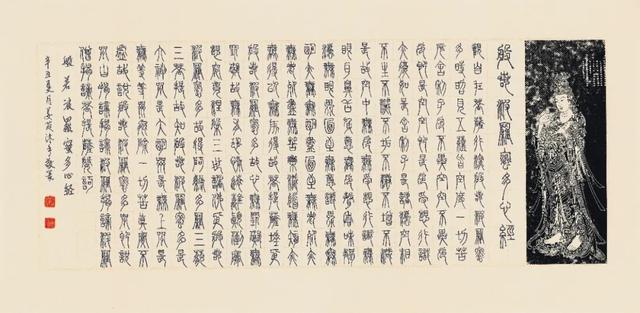 般若波羅蜜多心經
觀自在菩薩行深般若波羅蜜
多時照見五蘊皆空度一切苦
厄舍利子色不異空空不異
色色即是空空即是色受想行識
亦復如是舍利子是諸法空相
不生不滅不垢不淨不增不減
是故空中無色無受想行識無
眼耳鼻舌身意無色聲香味觸
法無眼界乃至無意識界無無
明亦無無明盡乃至無老死亦
無老死盡無苦集滅道無智亦
無得以無所得故菩提薩埵依
般若波羅蜜多故心無罣礙無
罣礙故無有恐怖遠離顛倒夢
想究竟涅槃三世諸佛依般若
波羅蜜多故得阿耨多羅三藐
三菩提故知般若波羅蜜多是
大神咒是大明咒是無上咒是
無等等咒能除一切苦真實不
虛故說般若波羅蜜多咒即說
咒曰揭諦揭諦波羅揭諦波羅
僧揭諦菩提薩婆訶
般若波羅蜜多心經
辛丑夏月姜沐手敬書